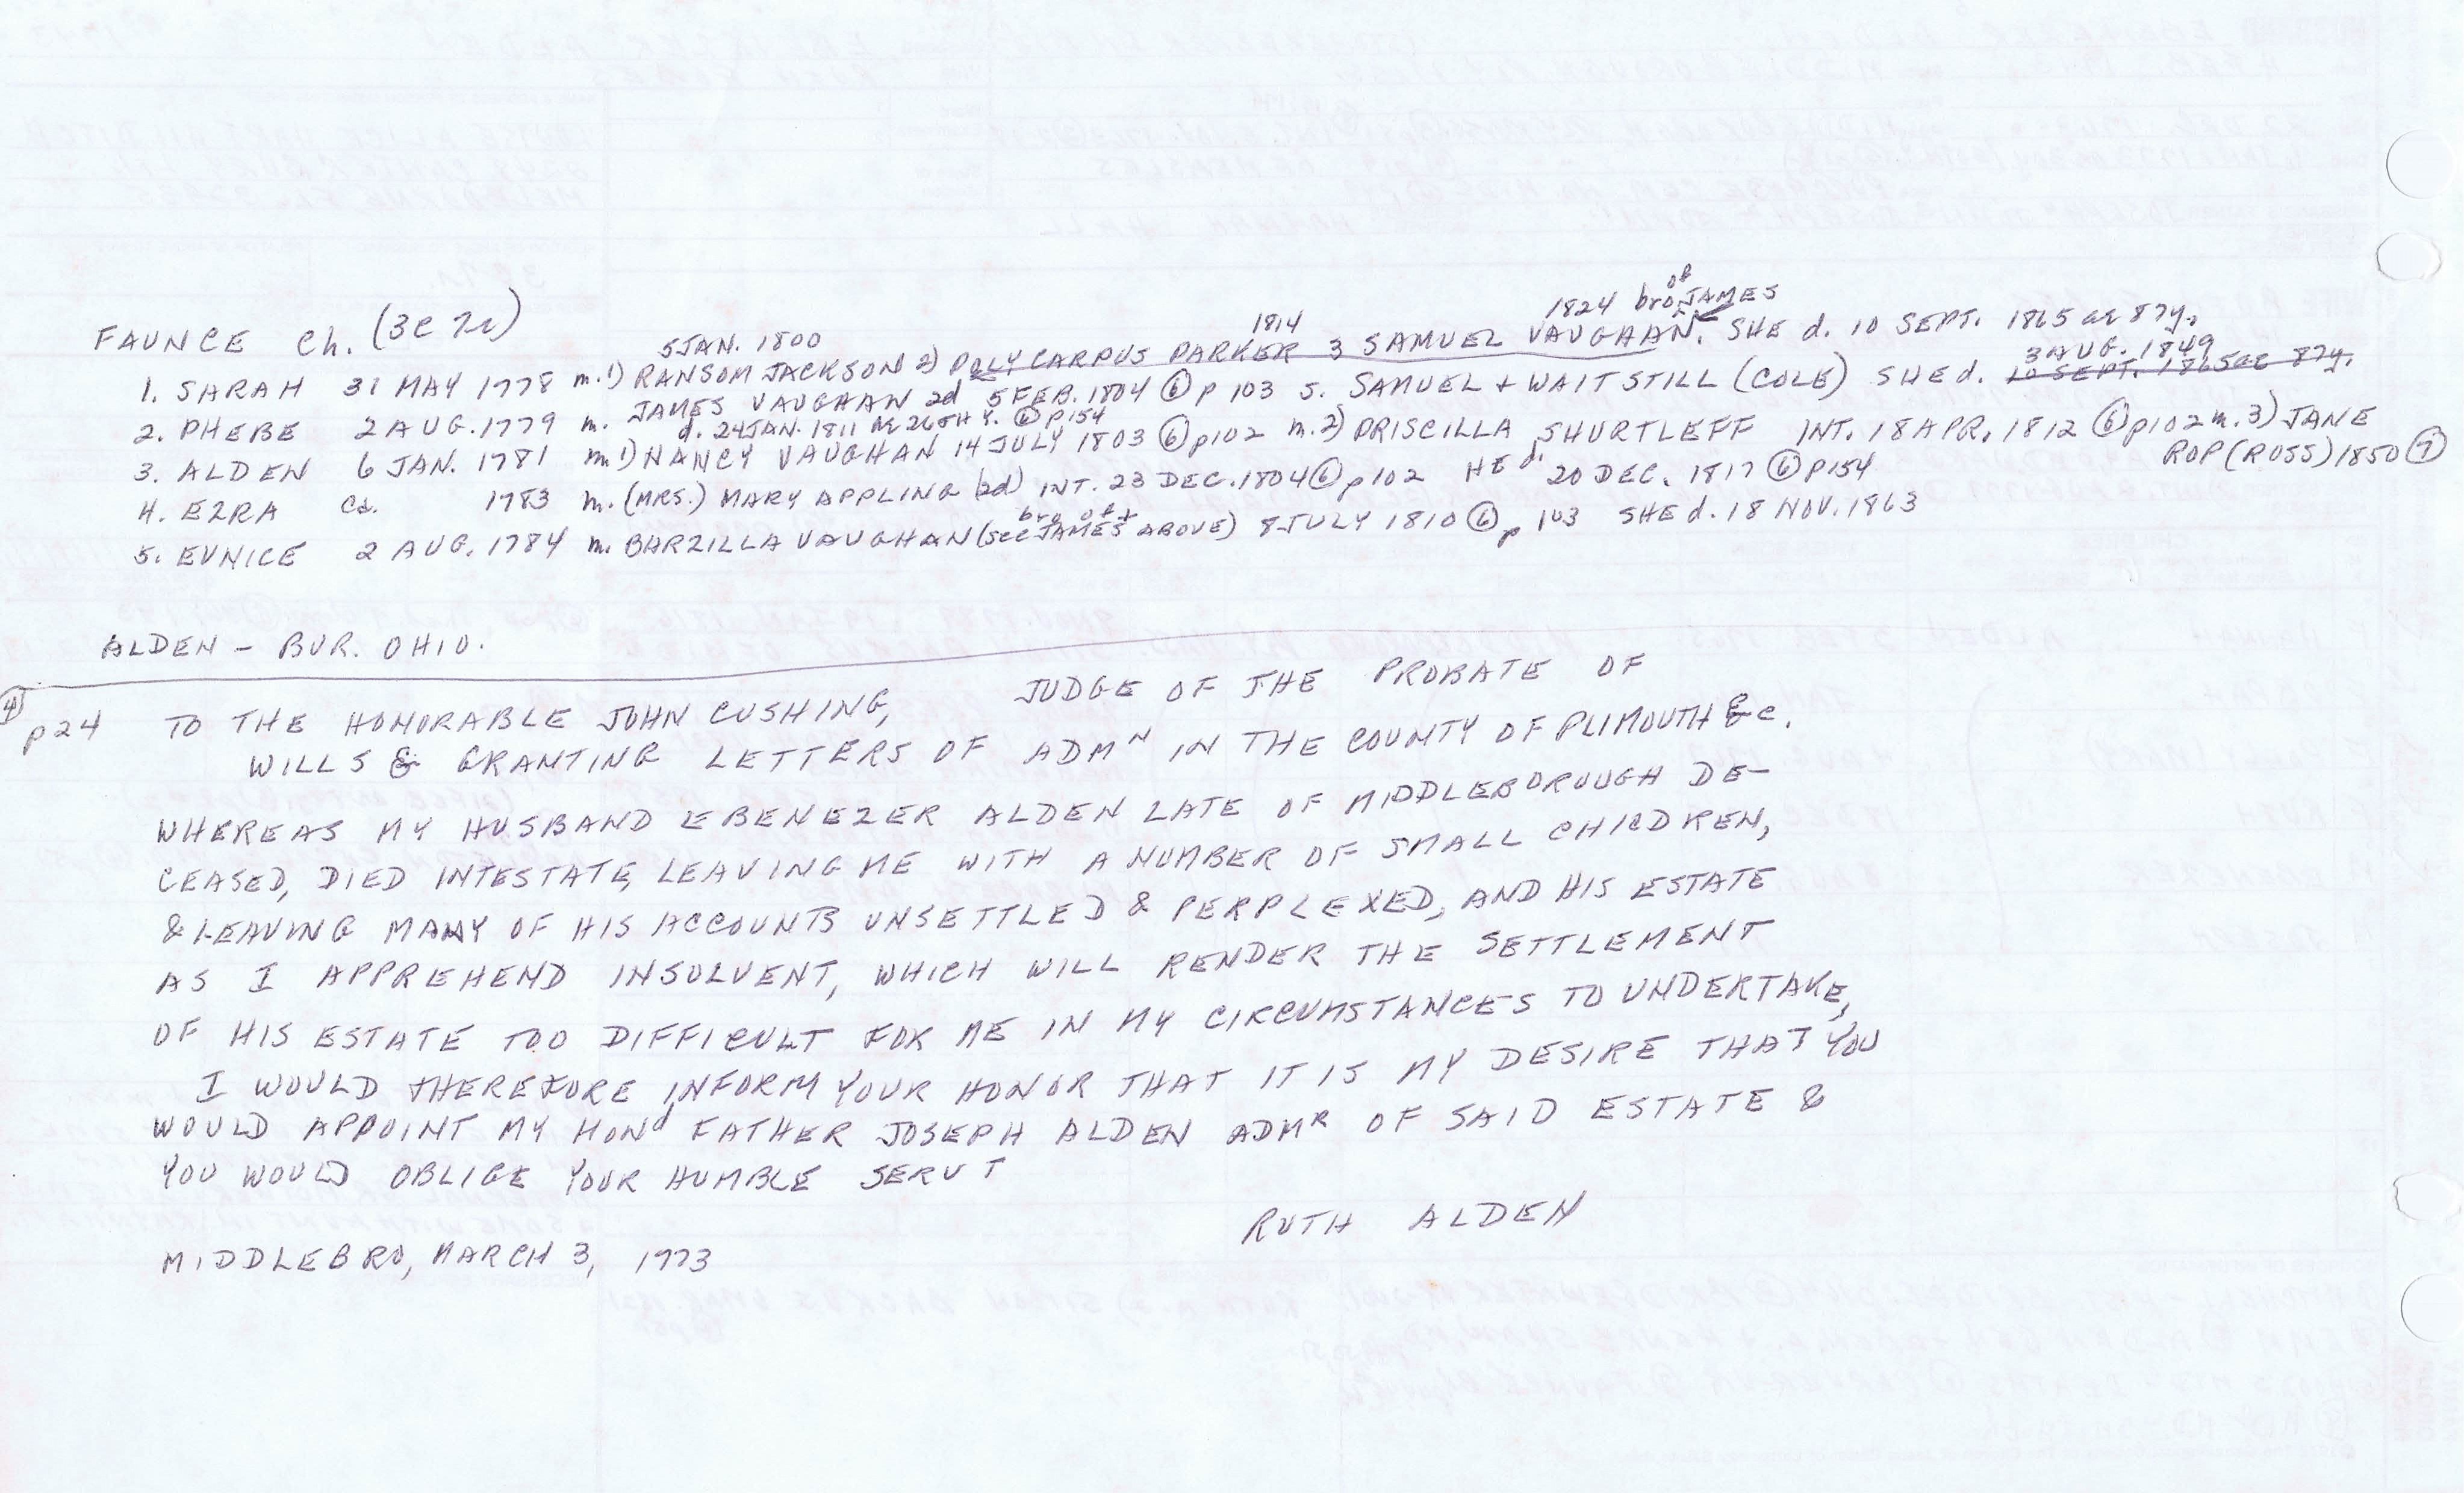 FAUNCE Ch. (3C7r)
5 JAN. 1800 1814 1824 bro of JAMES
1. SARAH 31 MAY 1778 m. 1) RANSOM JACKSON 2) POLYCARPUS PARKER 3 SAMUEL VAUGHAN. SHE d. 10 SEPT. 1865 ae 87y.
3 AUG. 1849
2. PHEBE 2 AUG. 1779 m. JAMES VAUGHAN 2d 5 FEB. 1804 ⑥ p 103 s. SAMUEL + WAITSTILL (COLE) SHE d. 10 SEPT. 1865 ae 87y.
d. 24 JAN. 1811 AE 26TH Y. ⑥ p154
3. ALDEN 6 JAN. 1781 m. 1) NANCY VAUGHAN 14 JULY 1803 ⑥ p102 m. 2) PRISCILLA SHURTLEFF INT. 18 APR. 1812 ⑥ p102 m. 3) JANE
ROP (ROSS) 1850 ⑦
4. EZRA Ca. 1783 m. (MRS.) MARY APPLING (2d) INT. 23 DEC. 1804 ⑥ p102 HE d. 20 DEC. 1817 ⑥ p154
5. EUNICE 2 AUG. 1784 m. BARZILLA VAUGHAN (see JAMES ABOVE) 8 JULY 1810 ⑥ p 103 SHE d. 18 NOV. 1863
ALDEN – BUR. OHIO.
④ p24 TO THE HONORABLE JOHN CUSHING, JUDGE OF THE PROBATE OF
WILLS & GRANTING LETTERS OF ADMN IN THE COUNTY OF PLIMOUTH &c.
WHEREAS MY HUSBAND EBENEZER ALDEN LATE OF MIDDLEBOROUGH DE-
CEASED, DIED INTESTATE, LEAVING ME WITH A NUMBER OF SMALL CHILDREN,
& LEAVING MANY OF HIS ACCOUNTS UNSETTLED & PERPLEXED, AND HIS ESTATE
AS I APPREHEND INSOLVENT, WHICH WILL RENDER THE SETTLEMENT
OF HIS ESTATE TOO DIFFICULT FOR ME IN MY CIRCUMSTANCES TO UNDERTAKE,
I WOULD THEREFORE INFORM YOUR HONOR THAT IT IS MY DESIRE THAT YOU
WOULD APPOINT MY HONd FATHER JOSEPH ALDEN ADMR OF SAID ESTATE &
YOU WOULD OBLIGE YOUR HUMBLE SERVT
RUTH ALDEN
MIDDLEBRO, MARCH 3, 1773